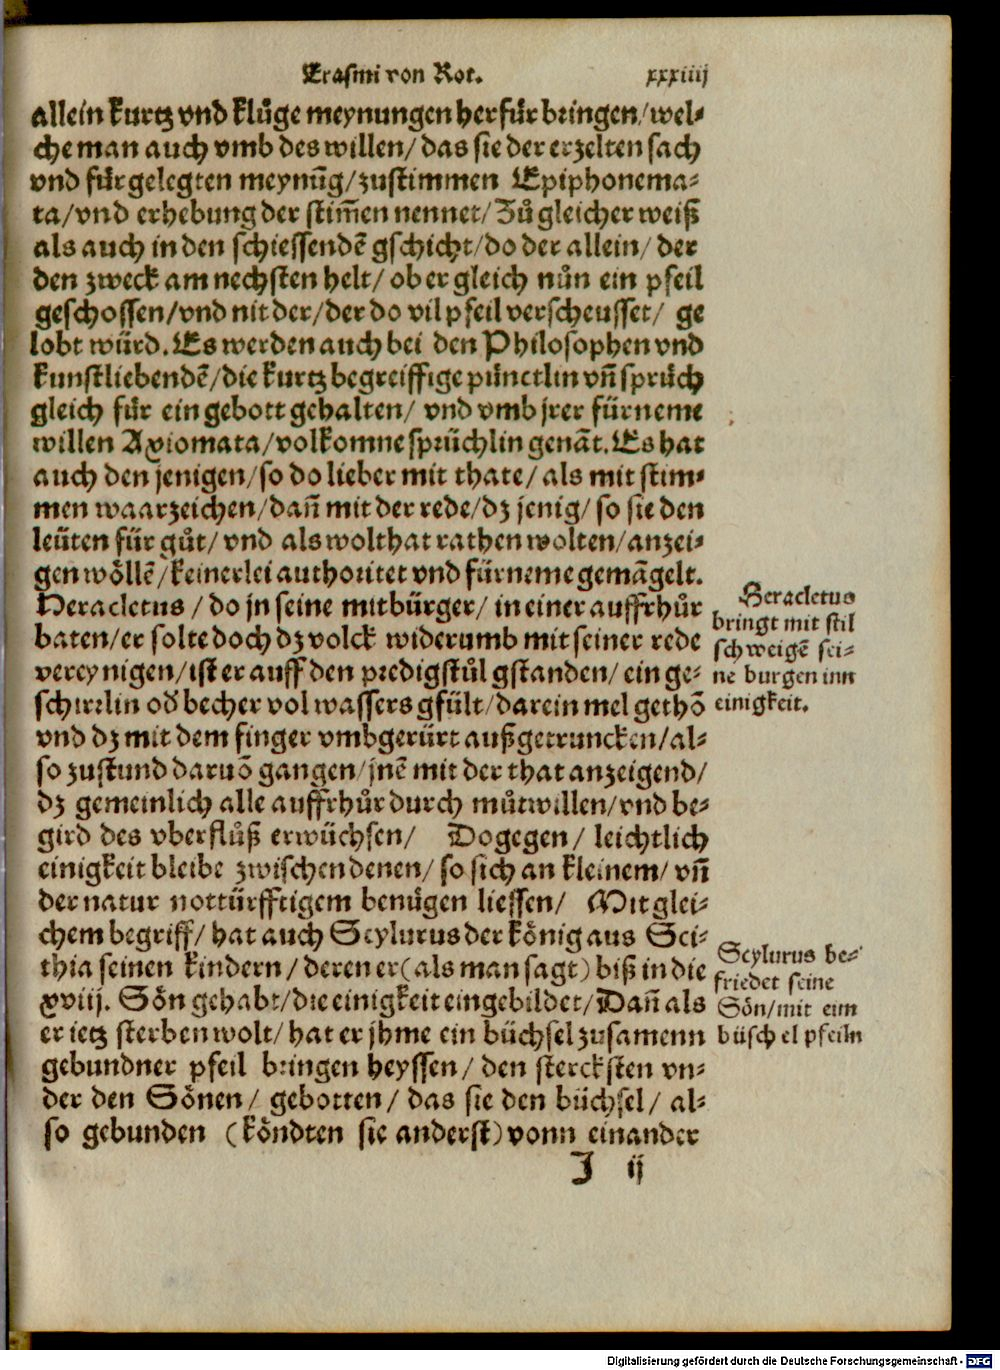 Erasmi von Rot. xxxiiij
allein kurtz vnd klůge meynungen herfür bringen/wel⸗
che man auch vmb des willen/das sie der erzelten sach
vnd fürgelegten meynūg/zustimmen Epiphonema⸗
ta/vnd erhebung der stim̄en nennet/Zů gleicher weiß
als auch in den schiessendē gschicht/do der allein/der
den zweck am nechsten helt/ob er gleich nůn ein pfeil
geschossen/vnd nit der/der do vil pfeil verscheusset/ ge
lobt würd. Es werden auch bei den Philosophen vnd
kunstliebendē/die kurtz begreiffige pünctlin vn̄ sprüch
gleich für ein gebott gehalten/ vnd vmb jrer fürneme
willen Axiomata/volkomne sprüchlin genāt. Es hat
auch den jenigen/so do lieber mit thate/als mit stim⸗
men waarzeichen/dan̄ mit der rede/dz jenig/ so sie den
leüten für gůt/ vnd als wolthat rathen wolten/anzei⸗
gen wöllē/keinerlei authoritet vnd fürneme gemāgelt.
Heracletus/do jn seine mitbürger/in einer auffrhůr
baten/er solte doch dz volck widerumb mit seiner rede
vereynigen/ist er auff den predigstůl gstanden/ein ge⸗
schirrlin od̄ becher vol wassers gfült/darein mel gethō
vnd dz mit dem finger vmbgerürt außgetruncken/al⸗
so zustund daruō gangen/jnē mit der that anzeigend/
dz gemeinlich alle auffrhůr durch můtwillen/vnd be⸗
gird des vberflůß erwüchsen/ Dogegen/ leichtlich
einigkeit bleibe zwischen denen/so sich an kleinem/vn̄
der natur nottürfftigem benůgen liessen/ Mit glei⸗
chem begriff/hat auch Scylurus der könig aus Sci⸗
thia seinen kindern/deren er(als man sagt)biß in die
xviij. Sön gehabt/die einigkeit eingebildet/Dan̄ als
er ietz sterben wolt/hat er jhme ein büchsel zusamenn
gebundner pfeil bringen heyssen/den stercksten vn⸗
der den Sönen/ gebotten/das sie den büchsel/al⸗
so gebunden (köndten sie anderst) vonn einander
J ij
Heracletus
bringt mit stil
schweigē sei⸗
ne burgen inn
einigkeit.
Scylurus be⸗
friedet seine
Sön/mit eim
büschel pfeiln
Digitalisierung gefördert durch die Deutsche Forschungsgemeinschaft - DFG